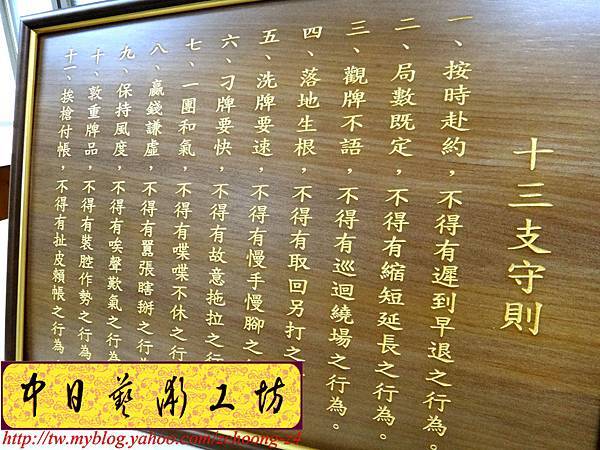 十三支守則
一、按時赴約，不得有遲到早退之行為。
二、局數既定，不得有縮短延長之行為。
三、觀牌不語，不得有巡迴繞場之行為。
四、落地生根，不得有取回另打之
五、洗牌要速，不得有慢手慢腳之
六、刁牌要快，不得有故意拖拉之行
七、一團和氣，不得有喋喋不休之行
八、贏錢謙虛，不得有囂張瞎掰之行為
九、保持風度，不得有唉聲歎氣之行為
十、敦重牌品，不得有裝腔作勢之行為
十一、挨槍付帳，不得有扯皮賴帳之行為
中日藝術工坊
http://tw.myblog.yahoo.com/zchoong-z4